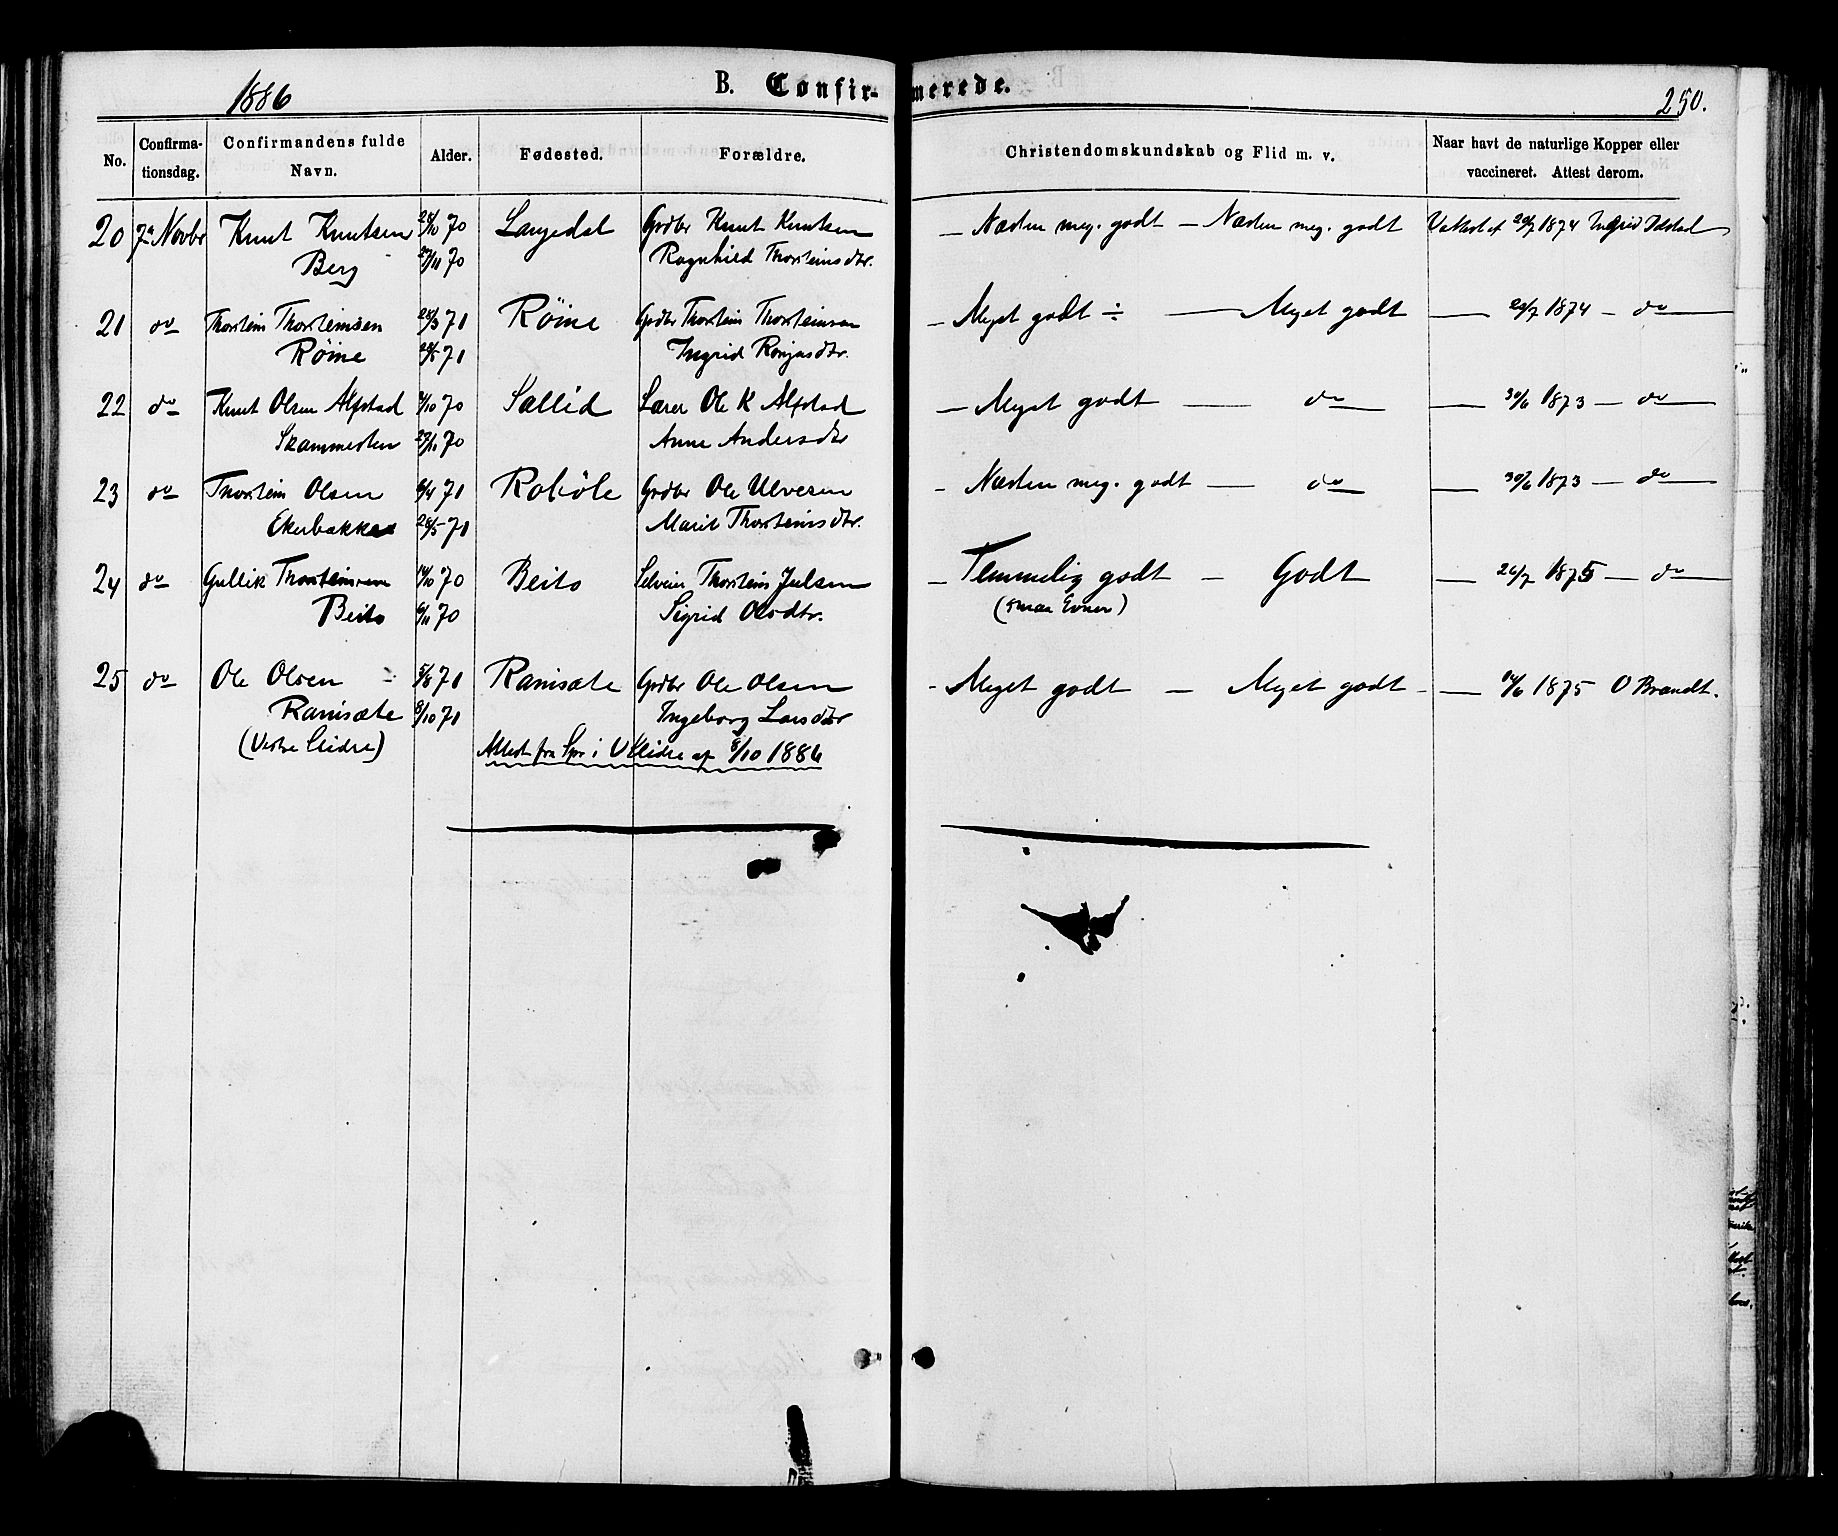 1886
B. Confir-merede.
250.
No.
Confirma-tionsdag.
Confirmandens fulde Navn.
Alder.
Fødested.
Forældre.
Christendomskundskab og Flid m. v.
Naar havt de naturlige Kopper eller vaccineret. Attest derom.
20 7de Novbr Knut Knutsen 28/10 70 Grdbr Knut Knutsen — Næsten meg. godt — Næsten meg. godt 20/7 1874 Ingrid
Berg 27/11 70 Ragnhild Thorsteinsdtr.
21 do Thorstein Thorsteinsen 25/3 71 Røine Grdbr Thorstein Thorsteinsen — Meget godt ÷ — Meget godt — 20/7 1874 — do
Røine 28/5 71 Ingrid
22 do Knut Olsen Alfstad /10 70 Sælid Lærer Ole K Alfstad — Meget godt — do — 30/6 1873 — do
Skammesten 27/11 70 Anne Andersdtr
23 do Thorstein Olsen 6/4 71 Robøle Grdbr Ole Ulvesen - Næsten meg. godt — do — 30/6 1873 — do
Ekerbakken 28/5 71 Marit Thorsteinsdtr.
24 do Gullik Thorsteinsen 14/10 70 Beito Selveier Thorstein Julsen — Temmelig godt — Godt — 26/7 1875 — do
Beito 6/11 70 Sigrid Olsdtr. (smaa Evner)
25 do Ole Olsen 5/8 71 Ranisæte Grdbr Ole Olsen - Meget godt — Meget godt — 14/6 1875 O Brandt.
Ranisæte 8/10 71 Ingeborg Larsdtr
(Vestre Slidre) Attest fra Spr i V Slidre af 8/10 1886